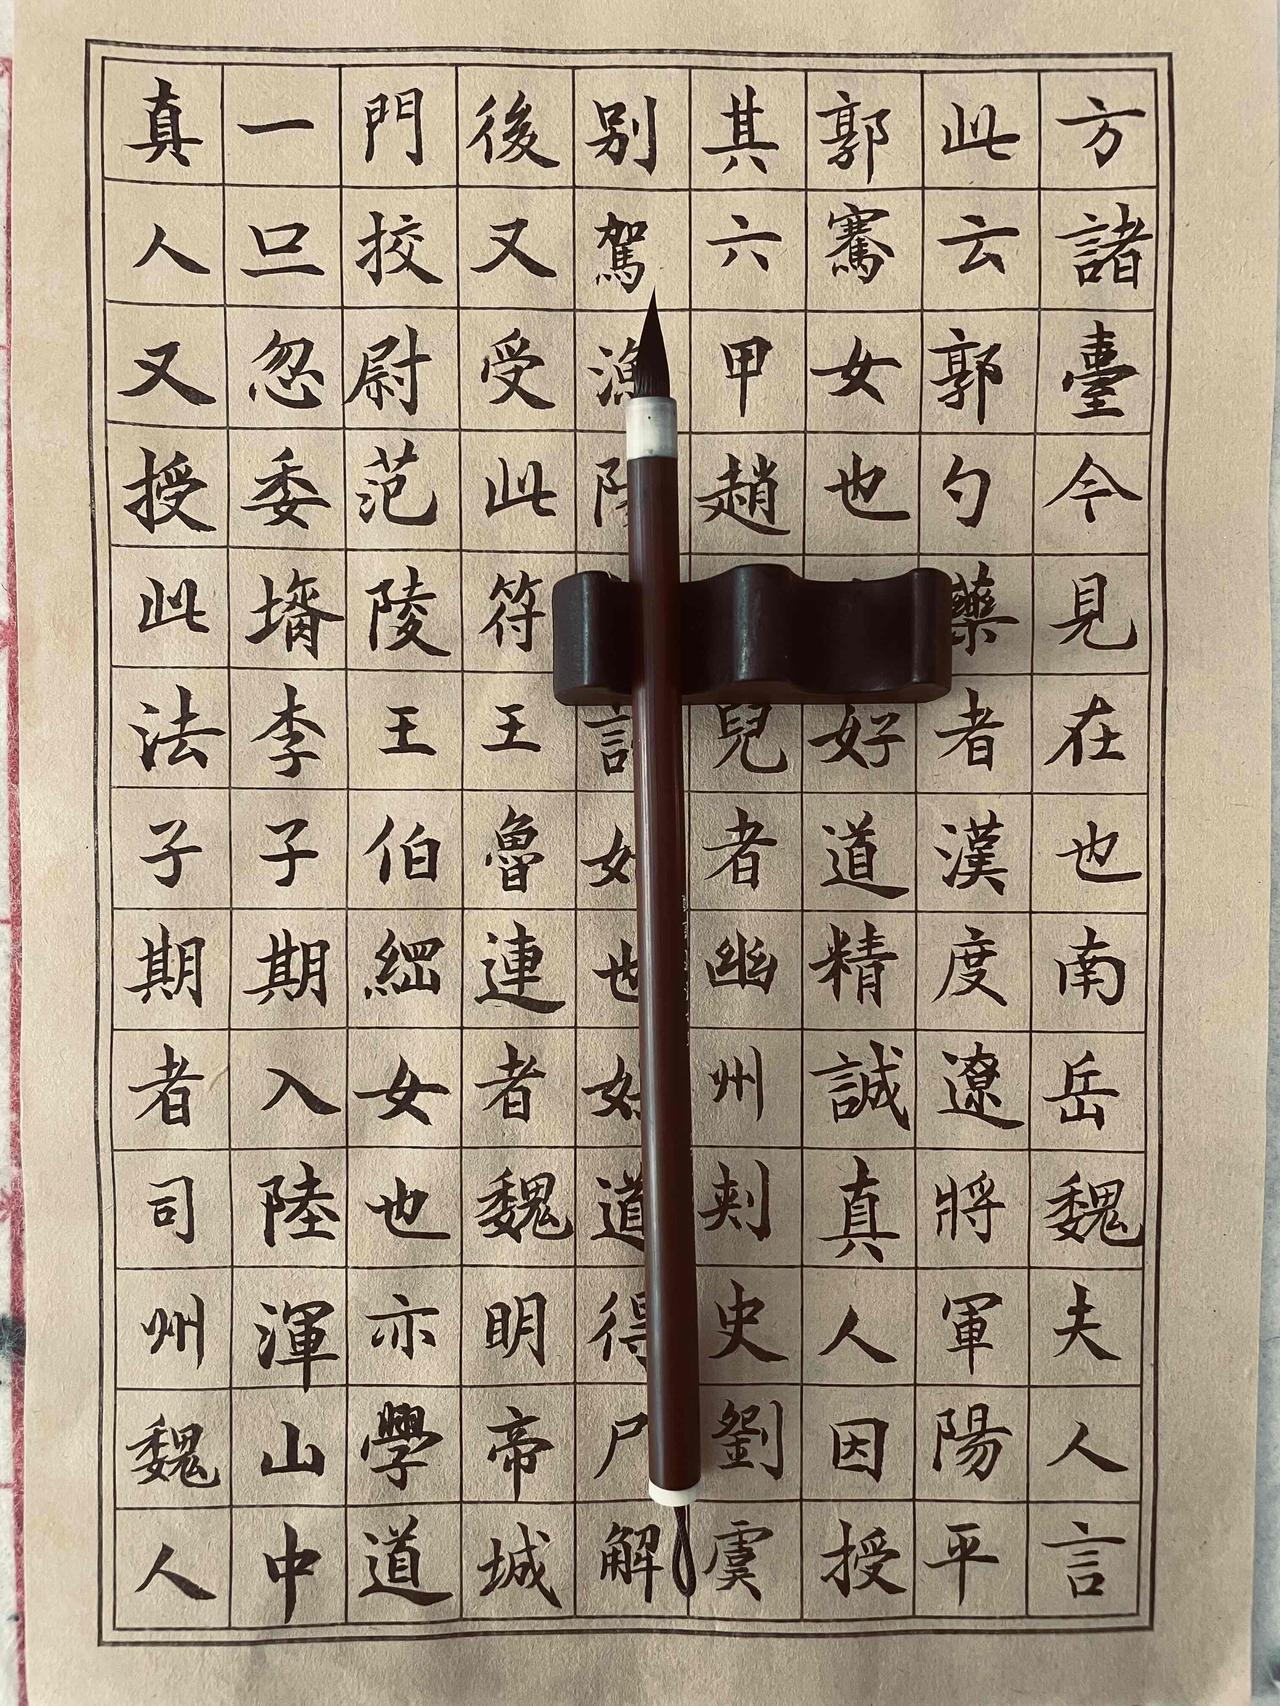 方諸臺今見在也南岳魏夫人言
此云郭勺藥者漢度遼將軍陽平
郭騫女也好道精誠真人因授
其六甲趙兒者幽州刾史劉虞
別駕漁陽女也道得尸解
後又受此符王魯連者魏明帝城
門挍尉范陵王伯綑女也亦學道
一旦忽委壻李子期入陸渾山中
真人又授此法子期者司州魏人